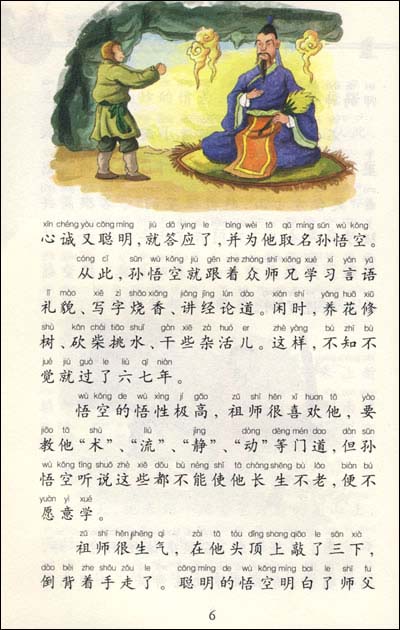 xīn chéng yòu cōng míng jiù dā yìng le bìng wèi tā qǔ míng sūn wù kōng
心诚又聪明，就答应了，并为他取名孙悟空。
cóng cǐ sūn wù kōng jiù gēn zhe zhòng shī xiōng xué xí yán yǔ
从此，孙悟空就跟着众师兄学习言语
lǐ mào xiě zì shāo xiāng jiǎng jīng lùn dào xián shí yǎng huā xiū
礼貌、写字烧香、讲经论道。闲时，养花修
shù kǎn chái tiāo shuǐ gàn xiē zá huó er zhè yàng bù zhī bù
树、砍柴挑水、干些杂活儿。这样，不知不
jué jiù guò le liù qī nián
觉就过了六七年。
wù kōng de wù xìng jí gāo zǔ shī hěn xǐ huan tā yào
悟空的悟性极高，祖师很喜欢他，要
jiāo tā shù liú jìng dòng děng mén dao dàn sūn
教他“术”、“流”、“静”、“动”等门道，但孙
wù kōng tīng shuō zhè xiē dōu bù néng shǐ tā cháng shēng bù lǎo biàn bù
悟空听说这些都不能使他长生不老，便不
yuàn yì xué
愿意学。
zǔ shī hěn shēng qì zài tā tóu dǐng shang qiāo le sān xià
祖师很生气，在他头顶上敲了三下，
dào bēi zhe shǒu zǒu le cōng míng de wù kōng míng bai le shī fu
倒背着手走了。聪明的悟空明白了师父
6